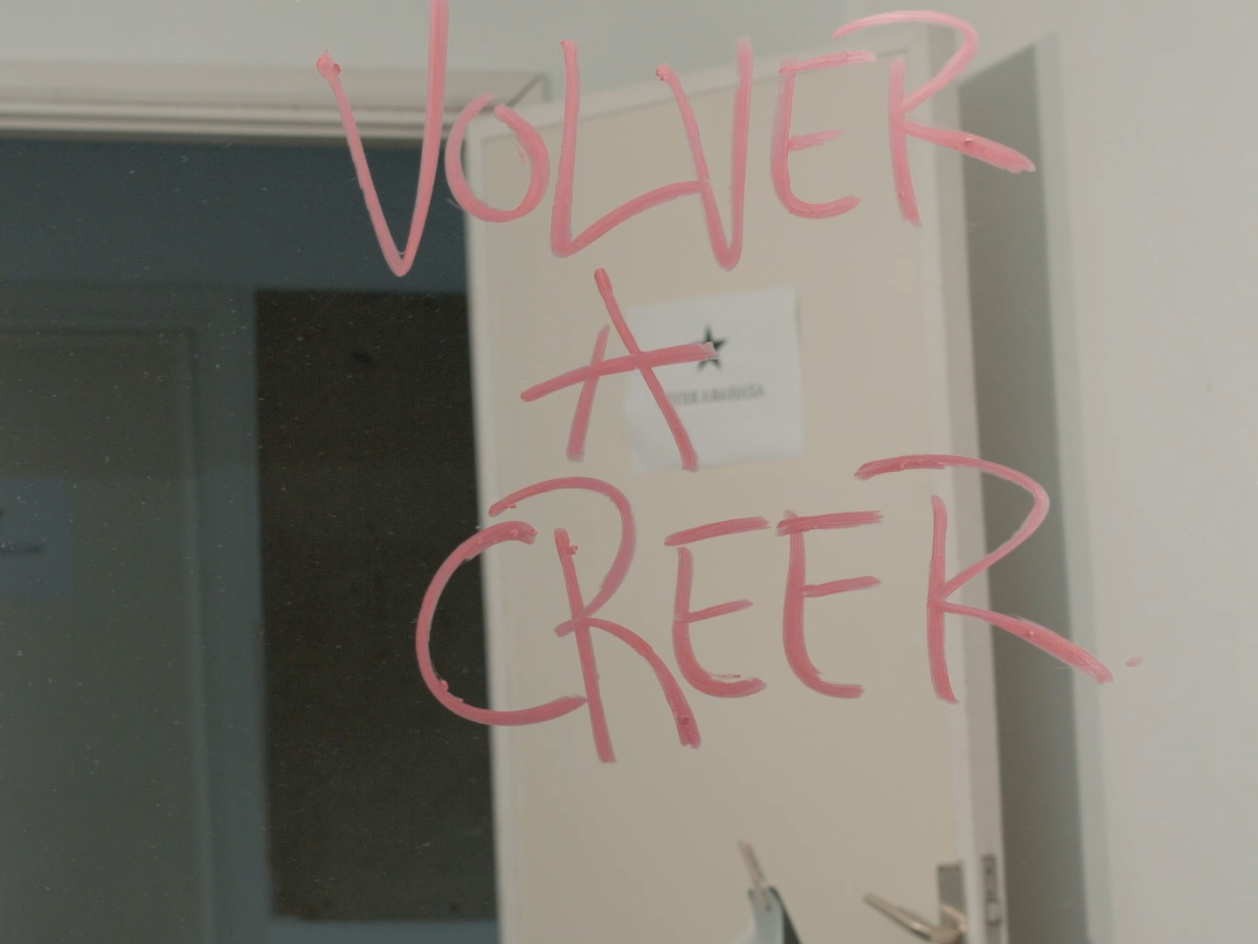 VOLVER
A
CREER.